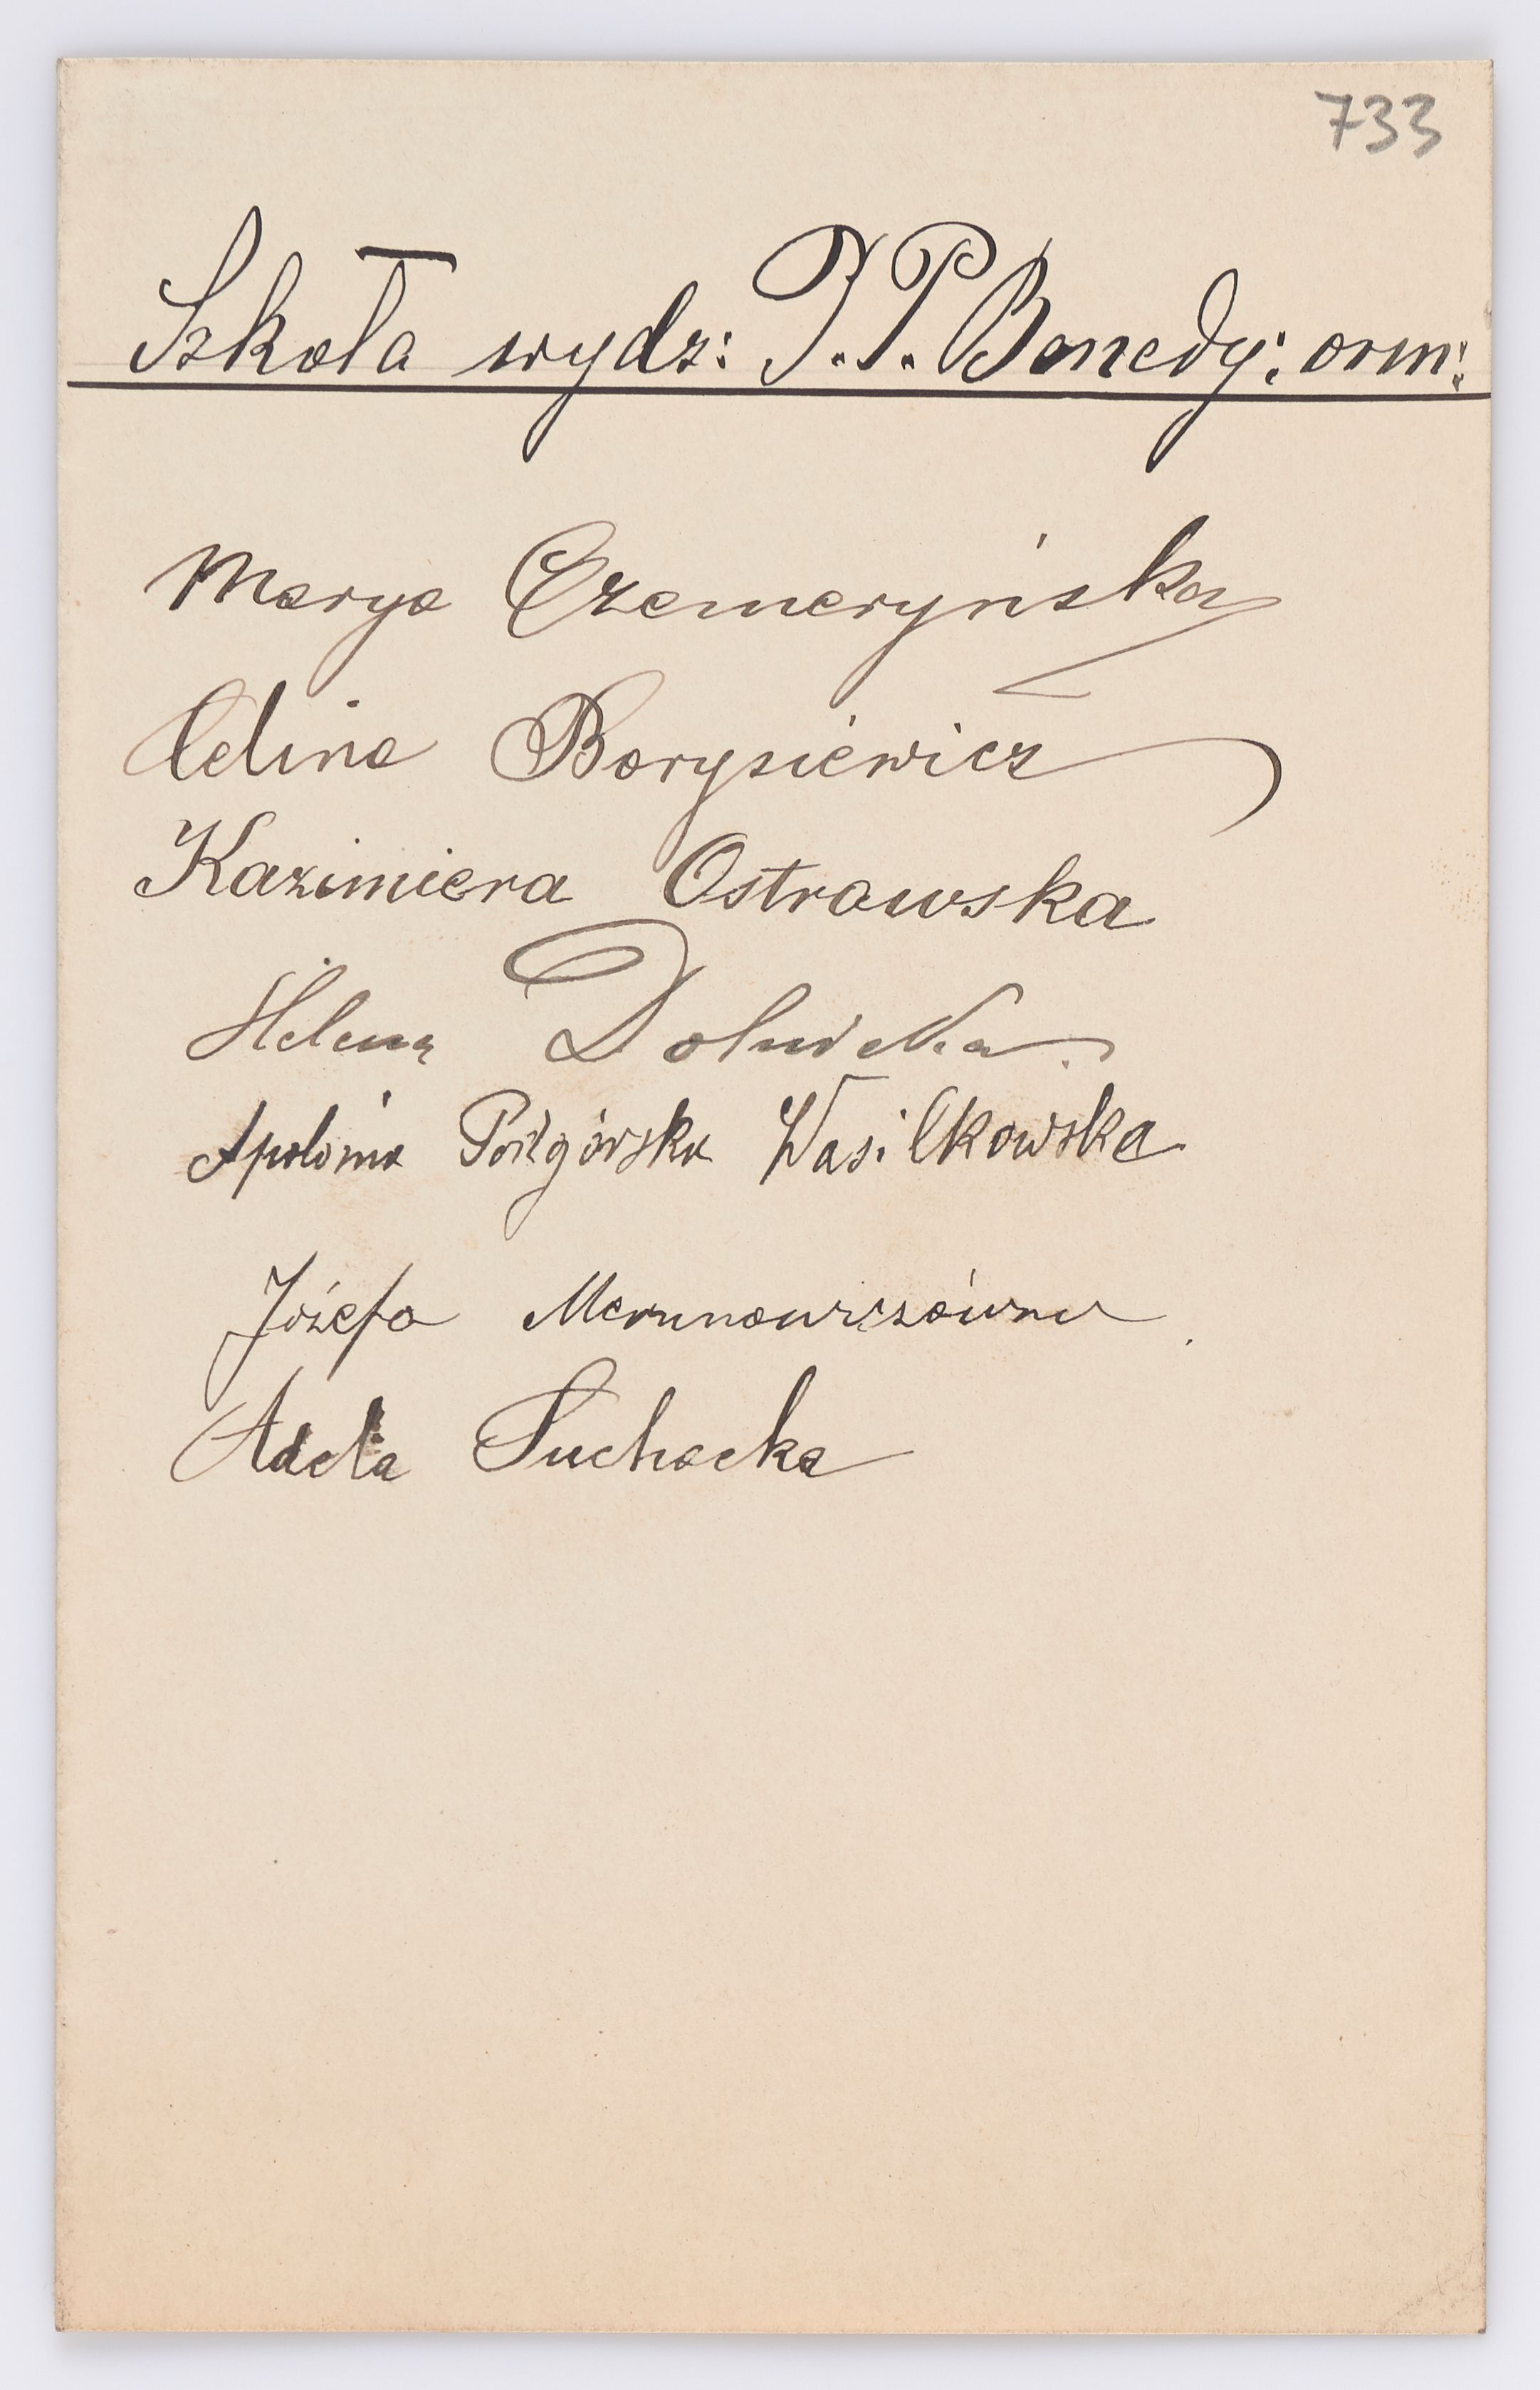 733
Szkoła wydz: P. P. Benedy: orm:
Marya Czemeryńska
Celina Borysiewicz
Kazimiera Ostrowska
Helena
Apolonia Podgórska Wasilkowska
Józefa Merunowiczówna
Adela Suchocka